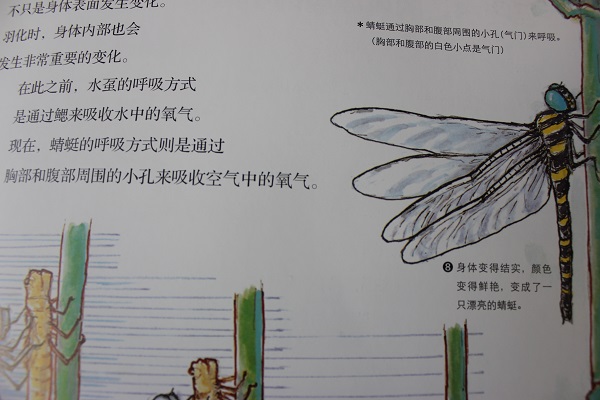 不只是身体表面发生变化。
羽化时，身体内部也会
发生非常重要的变化。
在此之前，水虿的呼吸方式
是通过鳃来吸收水中的氧气。
现在，蜻蜓的呼吸方式则是通过
胸部和腹部周围的小孔来吸收空气中的氧气。
＊蜻蜓通过胸部和腹部周围的小孔（气门）来呼吸。
（胸部和腹部的白色小点是气门）
❽身体变得结实，颜色
变得鲜艳，变成了一
只漂亮的蜻蜓。